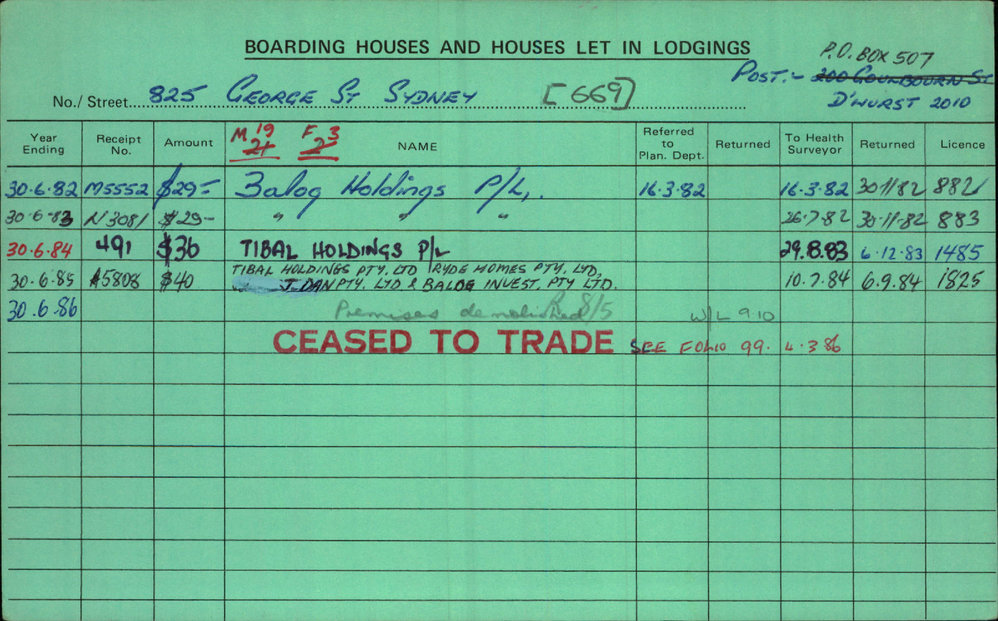 BOARDING HOUSES AND HOUSES LET IN LODGINGS
P.O. BOX 507
POST:- 200 GOULBOURN ST
No./ Street 825 GEORGE ST SYDNEY [669]
D'HURST 2010
Year Ending Receipt No. Amount M 19 21 F 3 2 NAME Referred to Plan. Dept. Returned To Health Surveyor Returned Licence
30.6.82 M5552 $29- Balog Holdings P/L, 16.3.82 16.3.82 30/11/82 882
30.6.83 N3081 $29- " " " 26.7.82 30.11.82 883
30.6.84 491 $36 TIBAL HOLDINGS P/L 29.8.83 6.12.83 1485
TIBAL HOLDINGS PTY. LTD RYDE HOMES PTY. LTD,
30.6.85 A5808 $40 J. DAN PTY. LTD & BALOG INVEST. PTY LTD. 10.7.84 6.9.84 1825
30.6.86 Premises demolished 8/5 W/L 9.10
CEASED TO TRADE SEE FOLIO 99. 4.3.86